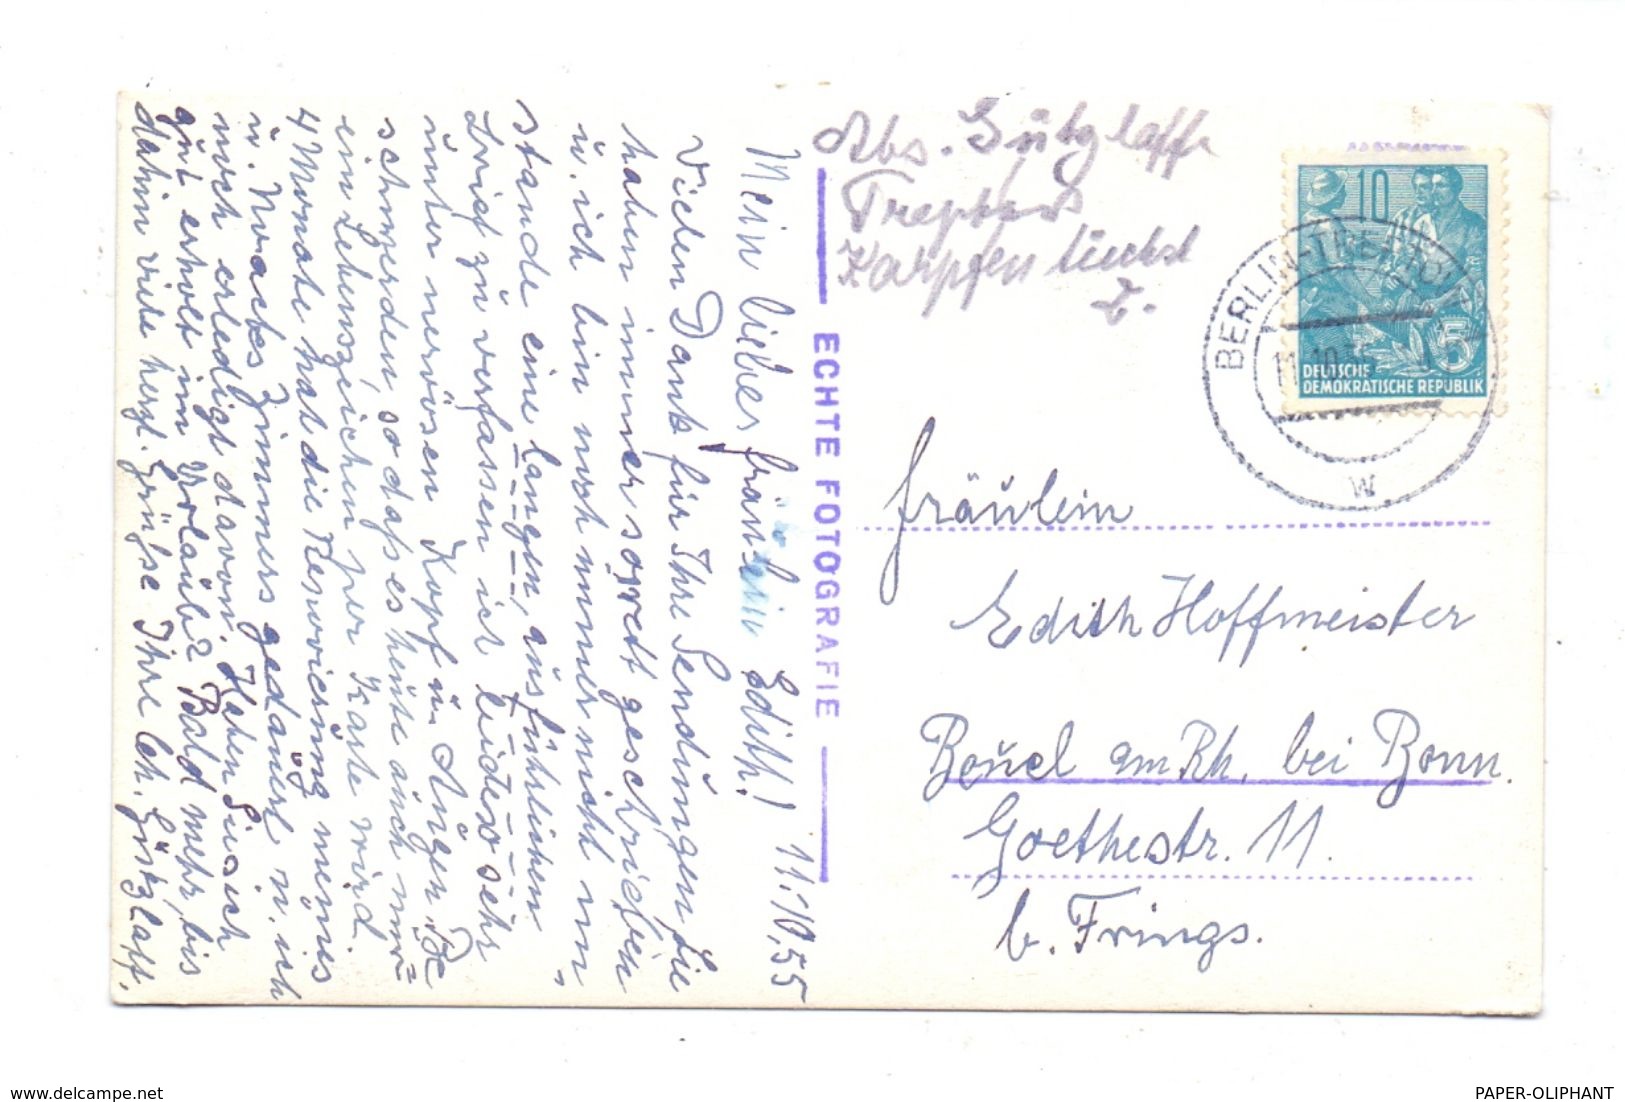 Mein liebes Fräulein Edith! 11.10.55
Vielen Dank für Ihre Sendungen die Sie
haben immer sorgett geschrieben
u. ich bin noch immer nicht im
stande eine langen, ausführlichen
Brief zu verfassen ich leider sehr
unter nervösen Kopf u. Augen Be
schwerden, sodaß es heute auch nur
ein Lebenszeichen per Karte wird
4 Monate hat die Renovierung meines
u. Zimmers gedauert u. ich
noch erledigt davon. Haben Sie sich
gut erholt im Urlaub? Bald mehr, bis
dahin viele herzl. Grüße Ihre Ch. Gützlaff.
ECHTE FOTOGRAFIE
Abs. Gützlaff
Treptow
Karpfenteichst
2.
10
5
DEUTSCHE
DEMOKRATISCHE REPUBLIK
BERLIN-TREPTOW
11.10.55
w
Fräulein
Edith Hoffmeister
Beuel am Rh. bei Bonn.
Goethestr. 11.
b. Frings.
oliphant on www.delcampe.net
PAPER-OLIPHANT